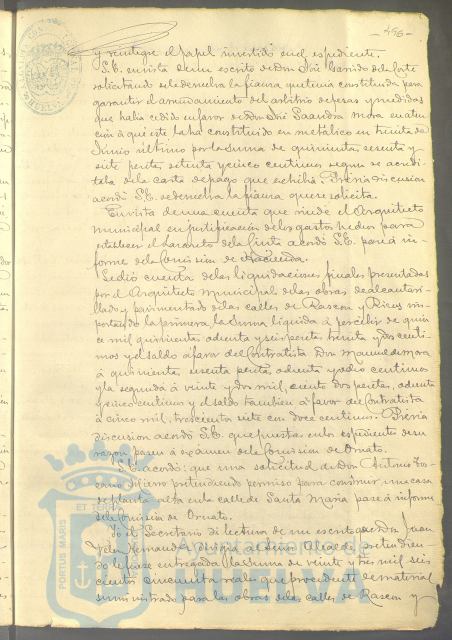 -496-
y reintegre el papel invertido en el espediente.
S.E. en vista de un escrito de Don José Garrido de la Corte
solicitando se le devuelva la fianza que tenia constituida para
garantir el arrendamiento del arbitrio de pesas y medidas
que habia cedido en favor de Don José Saavedra Mora en aten
cion á que este la ha constituido en metálico en treinta de
Junio último por la suma de quinientas sesenta y
siete pesetas setenta y cinco centimos segun se acredi
ta de la carta de pago que exhibia: Prévia discusion
acordó S.E. se devuelva la fianza que se solicita.
En vista de una cuenta que rinde el Arquitecto
municipal en justificacion de los gastos hechos para
establecer el Lazareto de la Cinta acordó S.E. pase á in
forme de la Comision de Hacienda.
Se dió cuenta de las liquidaciones finales presentadas
por el Arquitecto municipal de las obras de alcantari
llado y pavimentado de las calles de Rascon y Ricos im
portando la primera, la suma líquida á percibir de quin
ce mil quinientas ochenta y seis pesetas, treinta y dos centi
mos y el saldo á favor del Contratista Don Manuel de Mora
á quinientas sesenta pesetas, ochenta y ocho centimos
y la segunda á veinte y dos mil, ciento dos pesetas, ochenta
y cinco centimos y el saldo tambien á favor del Contratista
á cinco mil, trescientas siete con doce centimos. Prévia
discusion acordó S.E. que puestas en los espedientes de su
razon pasen á exámen de la Comision de Ornato.
S.E. acordó: que una solicitud de Don Antonio Tos
cano pretendiendo permiso para construir una casa
de planta alta en la calle de Santa Maria pase á informe
de la Comision de Ornato.
Yo el Secretario di lectura de un escrito que Don Juan
Hernandez dirivia al Señor Alcalde pretendien
do le fuese entregada la suma de veinte y tres mil seis
cientos cincuenta reales que procedente de material
suministrado para las obras de las calles de Rascon y
PORTUS MARIS
ET TERRÆ
Ayuntamiento de
HUELVA